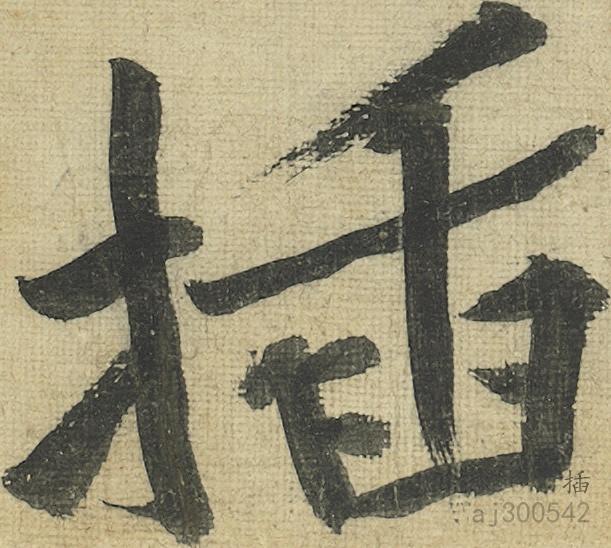 插
插
aj300542